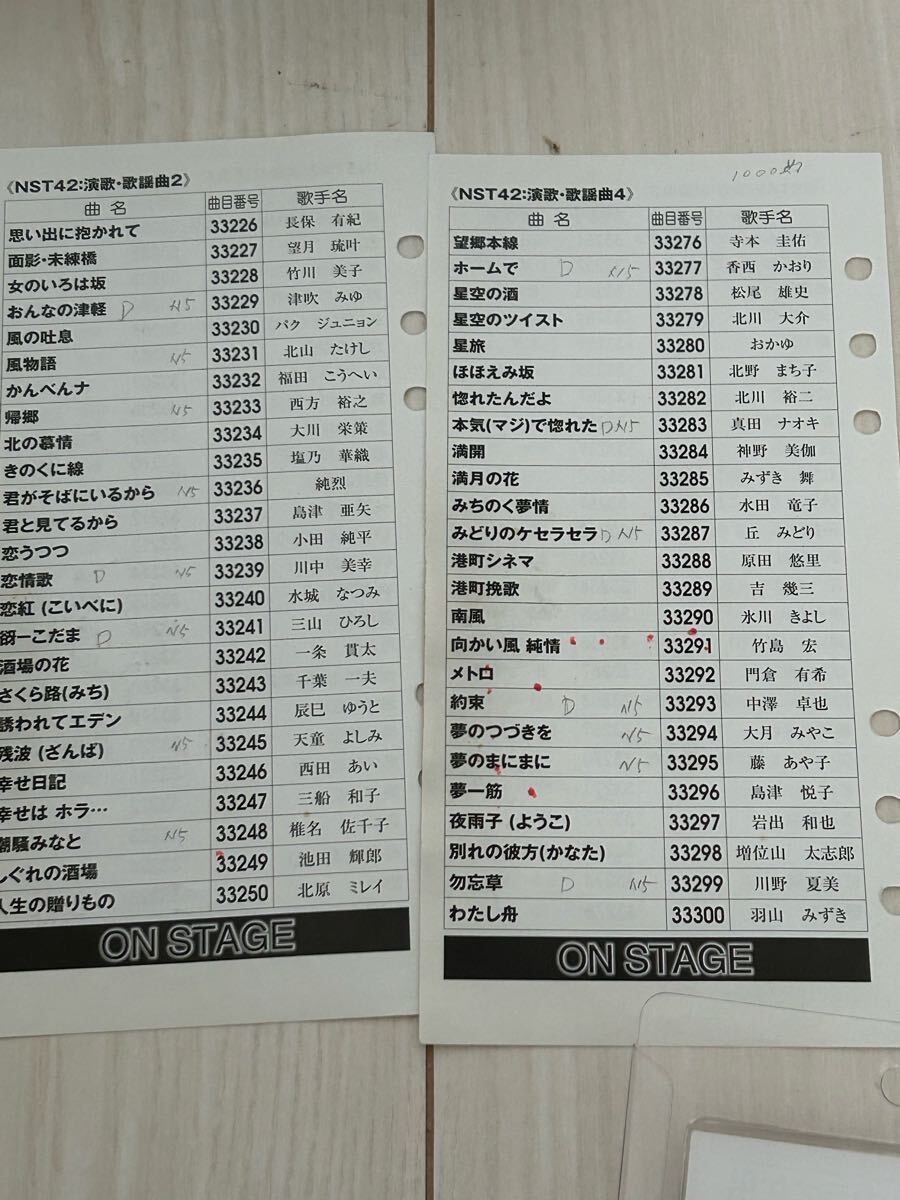 《NST42:演歌・歌謡曲2》
曲 名 曲目番号 歌手名
思い出に抱かれて 33226 長保 有紀
面影・未練橋 33227 望月 琉叶
女のいろは坂 33228 竹川 美子
おんなの津軽 D N5 33229 津吹 みゆ
風の吐息 33230 パク ジュニョン
風物語 N5 33231 北山 たけし
かんべんナ 33232 福田 こうへい
帰郷 N5 33233 西方 裕之
北の慕情 33234 大川 栄策
きのくに線 33235 塩乃 華織
君がそばにいるから N5 33236 純烈
君と見てるから 33237 島津 亜矢
恋うつつ 33238 小田 純平
恋情歌 D N5 33239 川中 美幸
恋紅 (こいべに) 33240 水城 なつみ
谺ーこだま D N5 33241 三山 ひろし
酒場の花 33242 一条 貫太
さくら路(みち) 33243 千葉 一夫
誘われてエデン 33244 辰巳 ゆうと
残波 (ざんぱ) N5 33245 天童 よしみ
幸せ日記 33246 西田 あい
幸せは ホラ… 33247 三船 和子
潮騒みなと N5 33248 椎名 佐千子
しぐれの酒場 33249 池田 輝郎
人生の贈りもの 33250 北原 ミレイ
ON STAGE
1000曲
《NST42:演歌・歌謡曲4》
曲 名 曲目番号 歌手名
望郷本線 33276 寺本 圭佑
ホームで D N15 33277 香西 かおり
星空の酒 33278 松尾 雄史
星空のツイスト 33279 北川 大介
星旅 33280 おかゆ
ほほえみ坂 33281 北野 まち子
惚れたんだよ 33282 北川 裕二
本気(マジ)で惚れた D N5 33283 真田 ナオキ
満開 33284 神野 美伽
満月の花 33285 みずき 舞
みちのく夢情 33286 水田 竜子
みどりのケセラセラ D N5 33287 丘 みどり
港町シネマ 33288 原田 悠里
港町挽歌 33289 吉 幾三
南風 33290 氷川 きよし
向かい風 純情 33291 竹島 宏
メトロ 33292 門倉 有希
約束 D N5 33293 中澤 卓也
夢のつづきを N5 33294 大月 みやこ
夢のまにまに N5 33295 藤 あや子
夢一筋 33296 島津 悦子
夜雨子 (ようこ) 33297 岩出 和也
別れの彼方(かなた) 33298 増位山 太志郎
勿忘草 D N5 33299 川野 夏美
わたし舟 33300 羽山 みずき
ON STAGE